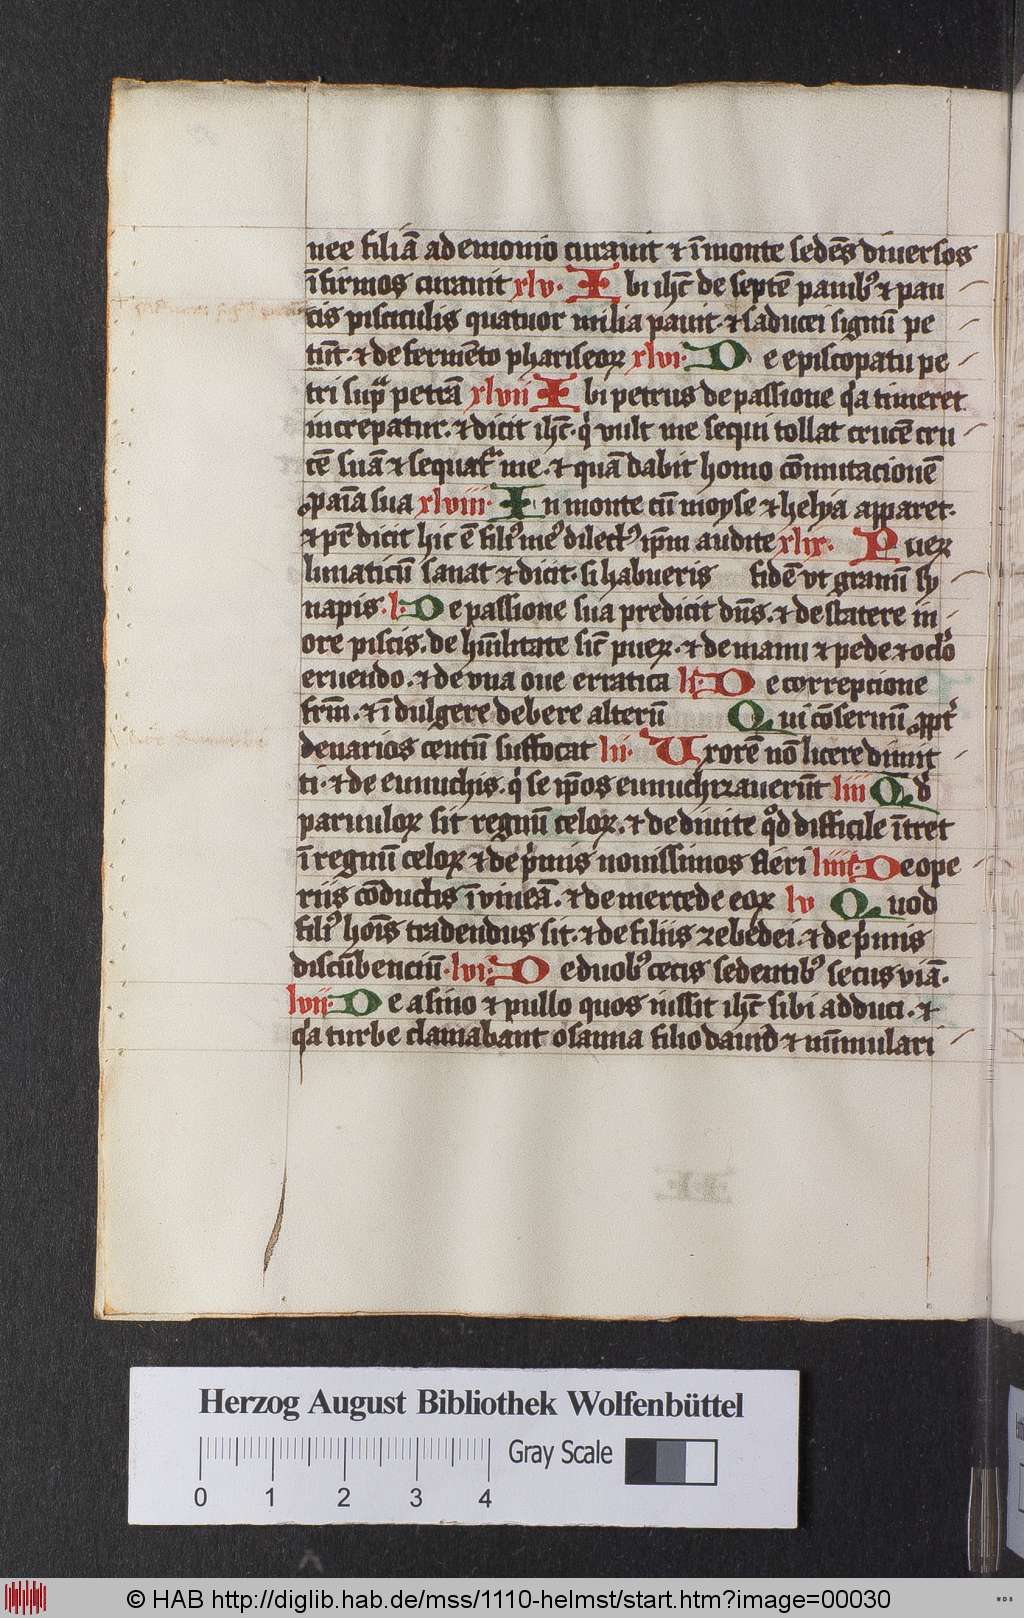 nee filiā ademonio curauit ⁊ ī monte sedēs diuersos
īfirmos curauit xlv· I bi ihc̄ de septē panibꝰ ⁊ pau
cis pisciculis quatuor milia pauit· ⁊ saducei signū pe
tūt· ⁊ de fermēto phariseoꝝ xlvi· D e episcopatu pe
tri supͣ petrā xlvii I bi petrus de passione qͥa timeret
increpatur· ⁊ dicit ihc̄· qͥ vult me sequi tollat crucē cru
cē suā ⁊ sequatᷣ me· ⁊ quā dabit homo cōmutacionē
ꝓ aīa sua xlviii· I n monte cū moyse ⁊ helya apparet·
⁊ pr̄ dicit hic ē filiꝰ meꝰ dilectꝰ ip̄m audite xlix· P ueꝝ
lunaticū sanat ⁊ dicit· si habueris fidē vt granū sy
napis· l· D e passione sua predicit dn̄s· ⁊ de statere in
ore piscis· de hūilitate sic̄ pueꝝ· ⁊ de manu ⁊ pede ⁊ oclo
eruendo· ⁊ de vna oue erratica li· D e correpcione
frm̄· ⁊ īdulgere debere alterū Q ui cōseruū ꝓpt
denarios centū suffocat lii· U xorē nō licere dimit
ti· ⁊ de eunuchis· qͥ se ip̄os eunuchizauerūt liii Q d
paruuloꝝ sit regnū celoꝝ· ⁊ de diuite qͦd difficile ītret
ī regnū celoꝝ ⁊ de pͥmis nouissimos fieri liiii· D e ope
riis cōductis ī vineā· ⁊ de mercede eoꝝ lv Q uod
filiꝰ hoīs tradendus sit· ⁊ de filiis zebedei· ⁊ de pͥmis
discūbenciū· lvi· D e duobꝰ cecis sedentibꝰ secus viā·
lvii· D e asino ⁊ pullo quos iussit ihc̄ sibi adduci· ⁊
qͥa turbe clamabant osanna filio dauid ⁊ nūmulari
Herzog August Bibliothek Wolfenbüttel
Gray Scale
0 1 2 3 4
© HAB http://diglib.hab.de/mss/1110-helmst/start.htm?image=00030